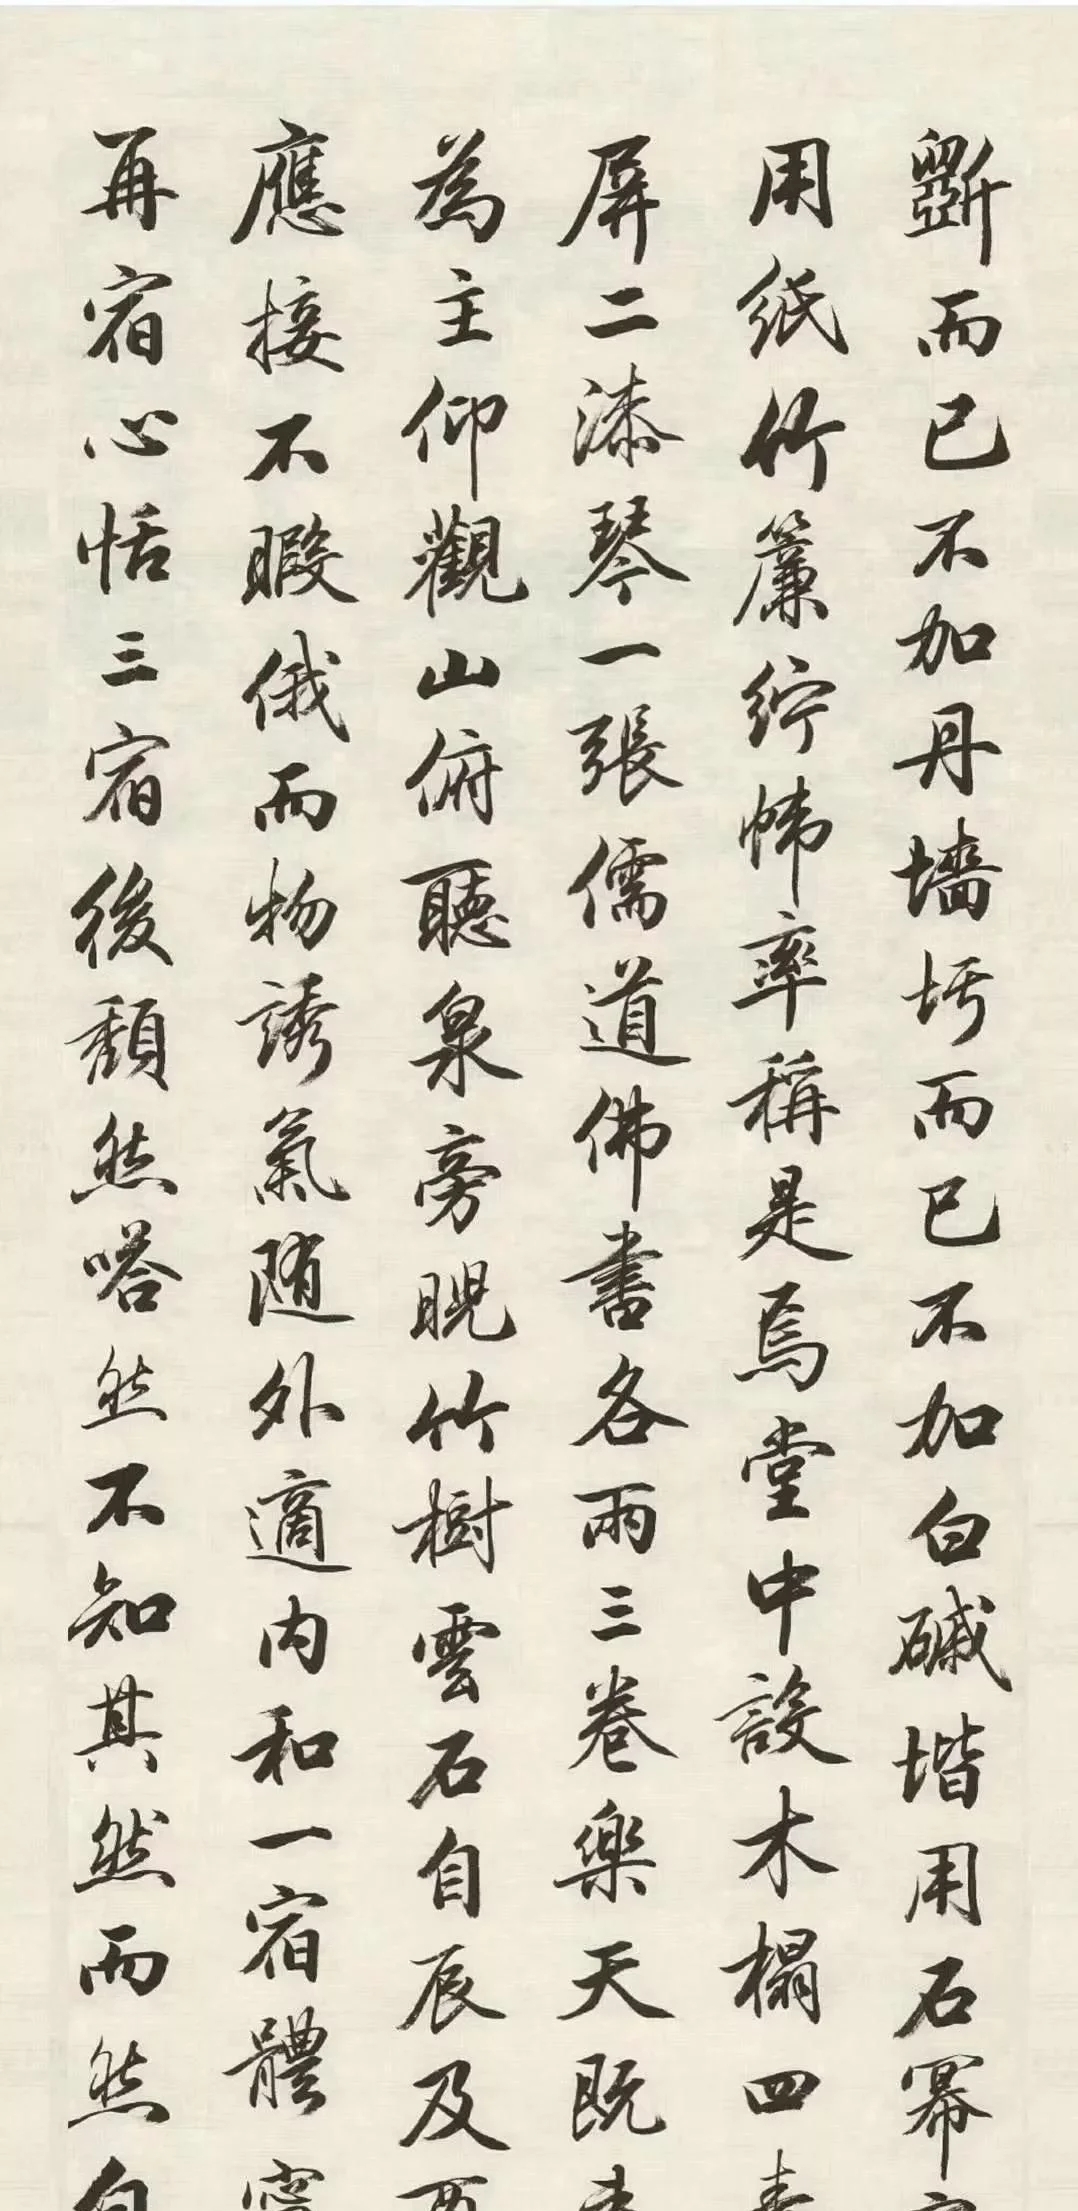 斵而已不加丹墻圬而已不加白磩堦用石冪
用紙竹簾紵幃率稱是焉堂中設木榻四素
屏二漆琴一張儒道佛書各兩三卷樂天既
為主仰觀山俯聽泉旁睨竹樹雲石自辰及酉
應接不暇俄而物誘氣随外適内和一宿體寧
再宿心恬三宿後頹然嗒然不知其然而然自